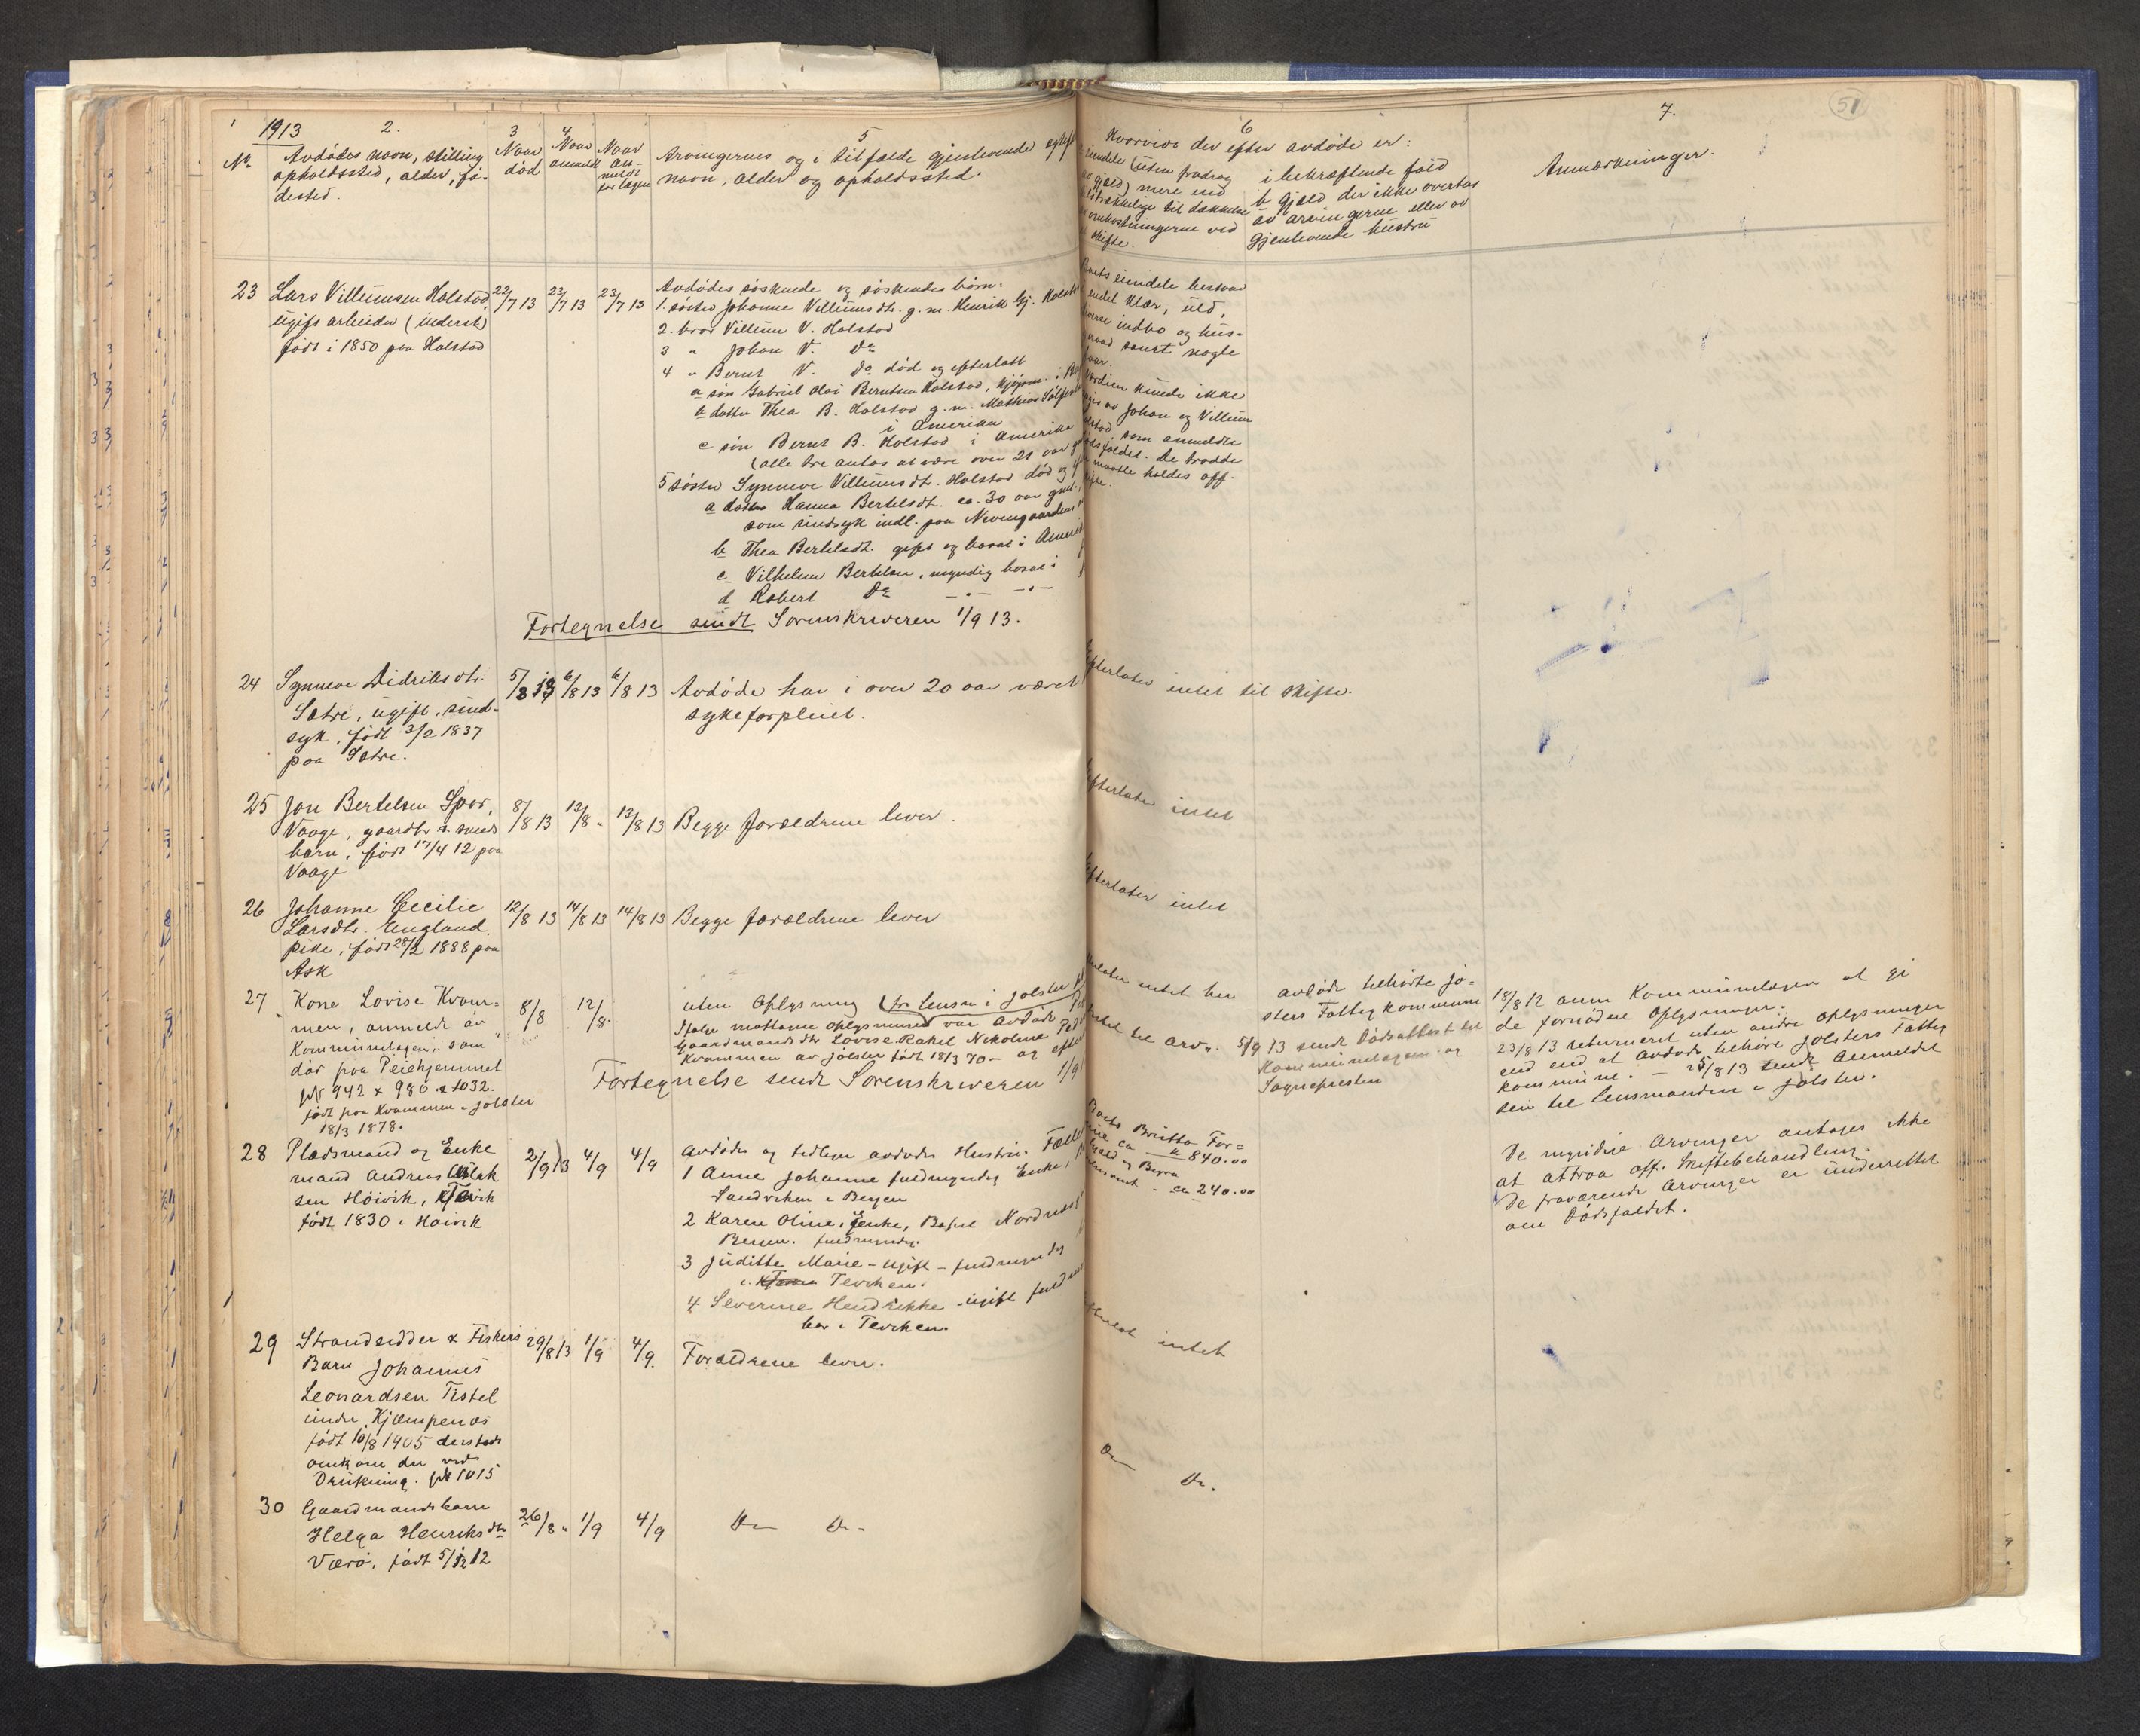 1913
2.
3
4
5
6
7.
51
No.
Avdødes navn, stilling
opholdssted, alder, fø-
dested.
Naar
død
Naar
anmeldt
Naar
an-
meldt
for lægen
Arvingernes og i tilfælde gjenlevende
navn, alder og opholdssted.
Hvorvidt der efter avdøde er:
eiendele (uten fradrag
gjæld) mere end
tilstrækkelige til dækkelse
omkostningerne ved
skifte.
i bekræftende fald
b gjæld der ikke overtas
av arvingerne eller av
gjenlevende hustru
Anmærkninger.
23
Lars Villumsen Holstad,
ugift arbeider (inderst)
født i 1850 paa Holstad
22/7 13
23/7 13
23/7 13
Avdødes søskende og søskendes børn:
1. søster Johanne Villumsdtr. g. m. Henrik Gj. Holstad
2. bror Villum V. Holstad
3 " Johan V. Do
4 " Bernt V. Do død og efterlatt
a søn Gabriel Olai Berntsen Holstad, kjøpm. i
b datter Thea B. Holstad g. m. Mathias
i Amerika
c søn Bernt B. Holstad i Amerika
(alle tre antas at være over 21 aar
5 søster Synneve Villumsdt. Holstad død og
a datter Hanna Bertelsdt. ca. 30 aar gml.
som sindsyk indl. paa Nevengaardens
b Thea Bertelsdt. gift og bosat i
c Vilhelm Bertelsen, myndig bosat i
d Robert Do -"- -"-
Boets eiendele bestaar
endel klær, uld,
indbo og hus-
geraad samt nogle
faar.
Værdien kunde ikke
av Johan og Villum
Holstad som anmeldte
dødsfaldet. De trodde
maatte holdes off.
skifte.
Fortegnelse sendt Sorenskriveren 1/9 13.
24
Synneve Didriksdtr.
Sætre, ugift, sind-
syk, født 3/2 1837
paa Sætre.
5/8 13
6/8 13
6/8 13
Avdøde har i over 20 aar været
sykeforpleiet.
Efterlater intet til skifte.
25
Jon Bertelsen
Vaage, gaardbr.
barn, født 17/4 12 paa
Vaage
8/8 13
13/8 "
13/8 13
Begge forældrene lever.
Efterlater intet
26
Johanne Cecilie
Larsdtr. England,
pike, født 28/2 1888 paa
Ask
12/8 13
14/8 13
14/8 13
Begge forældrene lever
Efterlater intet
27
Kone Lovise Kvam-
men, anmeldt av
Kommunelægen, som
død paa Pleiehjemmet
jnl 942 x 980 x 1032.
født paa Kvammen i Jølster
18/3 1878.
8/8
12/8.
uten Oplysning (fra Lensm i Jølster
Ifølge mottagne Oplysninger var Avdøde
Gaardmandsdtr Lovise Rakel Nikoline
Kvammen av Jølster født 18/3 70 - og
Fortegnelse sendt Sorenskriveren 1/9
Efterlater intet her
intet til arv.
avdøde tilhørte Jø-
sters Fattigkommune
5/9 13 sendt Dødsattest til
Kommunelægen og
Sognepresten
18/8 12 anm Kommunelægen at gi
de fornødne Oplysninger.
23/8 13 returneret uten andre oplysninger
end end at avdøde tilhøre Jølsters Fattig
kommune. - 25/8 13 sendt Anmeldel
sen til Lensmanden i Jølster.
28
Pladsmand og Enke
mand Andreas Aslak
sen Høivik,
født 1830 i Høivik
2/9 13
4/9
4/9
Avdødes og tidligere avdøde Hustru
1 Anne Johanne fuldmyndig Enke,
Sandviken i Bergen
2 Karen Oline, Enke, Bosat Nordnæs
Bergen. fuldmyndig.
3 Juditte Marie - ugift - fuldmyndig
i Teviken.
4 Severine Hendrikke - ugift
bor i Teviken.
Boets Brutto For-
mue ca kr 840.00
Gjæld og
ca 240.00
De myndige Arvinger antages ikke
at attraa off. Skiftebehandling.
De fraværende Arvinger er underrettet
om Dødsfaldet.
29
Strandsidder & Fiskers
Barn Johannes
Leonardsen Tistel
under Kjæmpenes
født 10/8 1905 dersteds
omkom der ved
Drukning. jnl 1015
29/8 13
1/9
4/9.
Forældrene lever.
intet
30
Gaardmandsbarn
Helga Henriksdtr
Værø, født 5/12 12
26/8 "
1/9
4/9
Do Do.
Do Do.